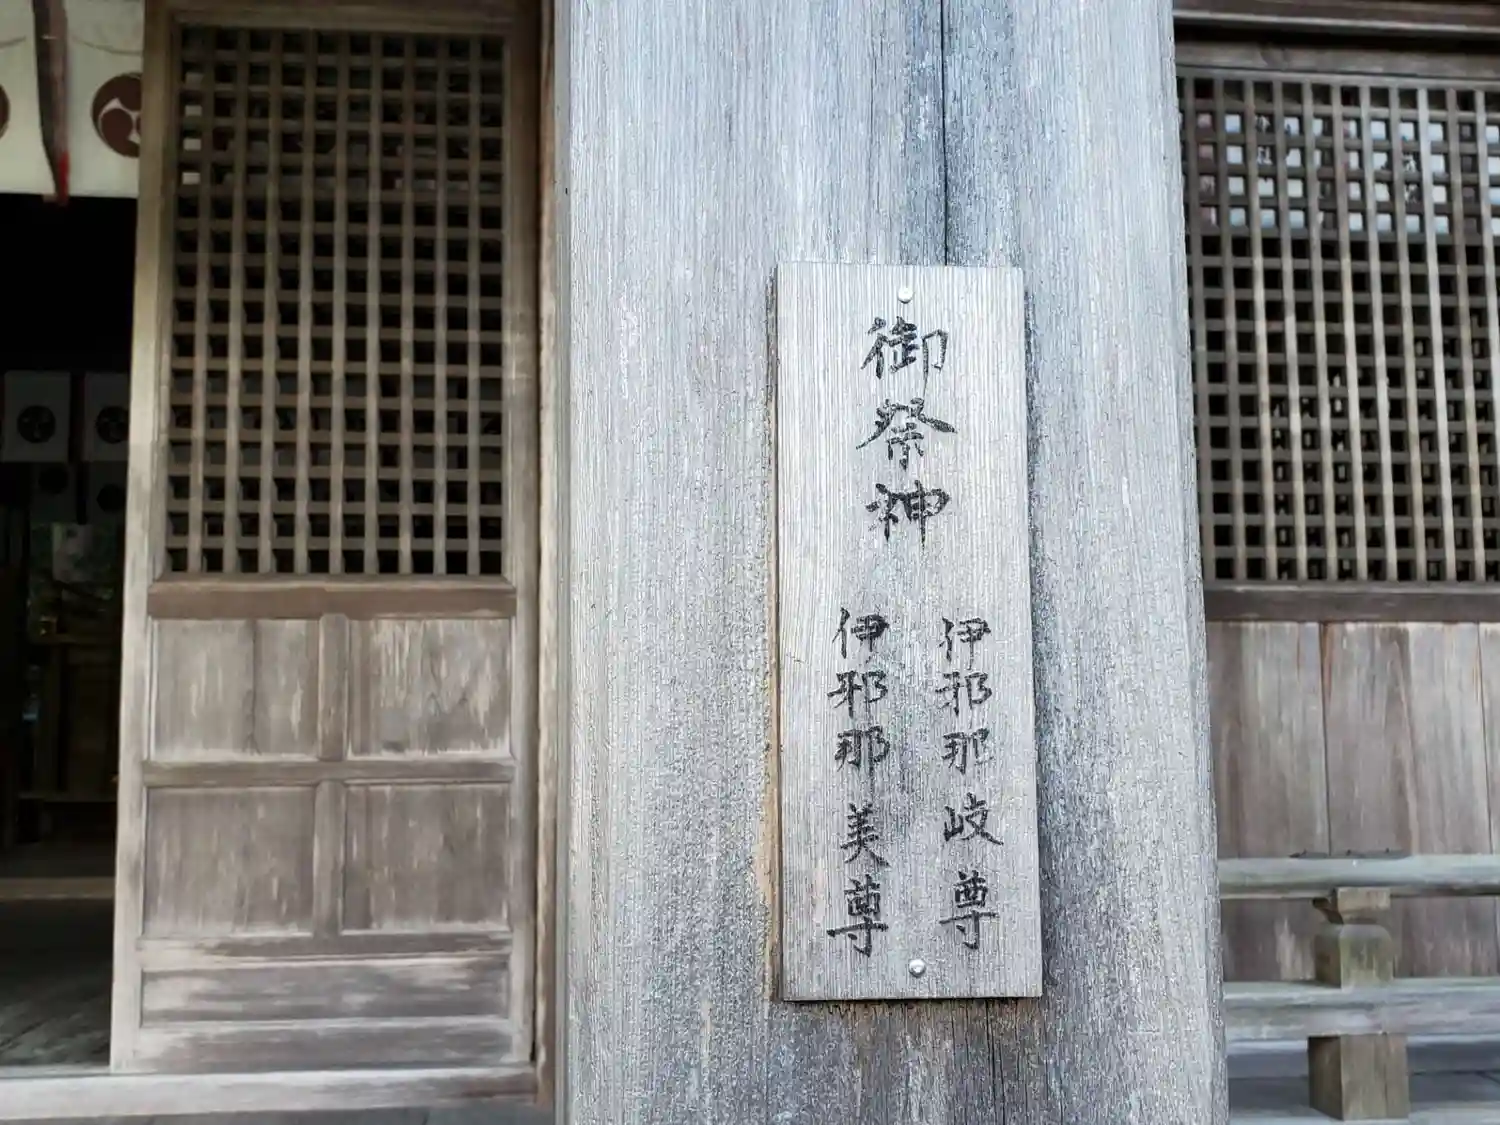 御祭神
伊邪那岐尊
伊邪那美尊